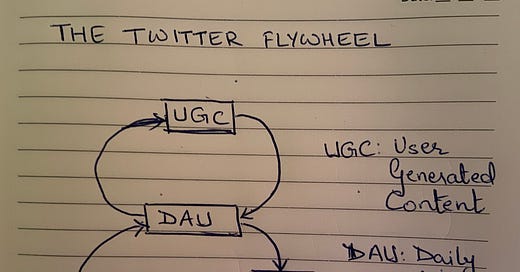 THE TWITTER FLYWHEEL
UGC
UGC: User
Generated
Content
DAU
DAU: Daily